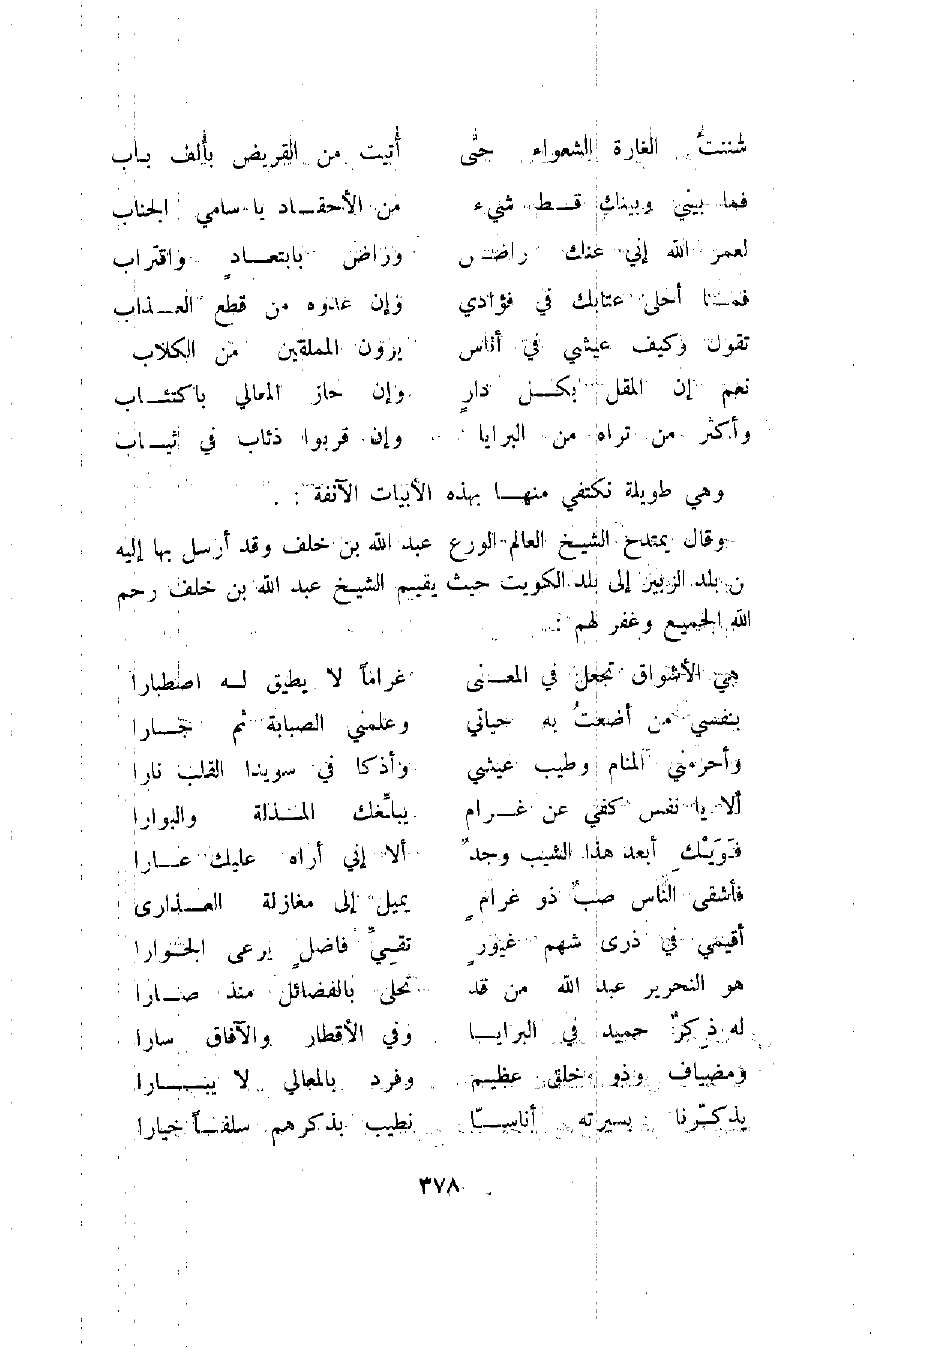 شننتُ الغارة الشعواء حتَّى أُتيت من القريض بأَلف باب
فما بيني وبينك قط شيء من الأحقاد يا سامي الجناب
لعمر الله إني عنك راض وراض بابتعادٍ واقتراب
فما أحلى عتابك في فؤادي وإن عدوه من قطع العذاب
تقول وكيف عيشي في أناس يرون المملقين من الكلاب
نعم إن المقل بكل دارٍ وإن حاز المعالي باكتئاب
وأكثر من تراه من البرايا وإن قربوا ذئاب في ثياب
وهي طويلة نكتفي منها بهذه الأبيات الآنفة :
وقال يمتدح الشيخ العالم الورع عبد الله بن خلف وقد أرسل بها إليه
ن بلد الزبير إلى بلد الكويت حيث يقيم الشيخ عبد الله بن خلف رحم
الله الجميع وغفر لهم :
هي الأشواق تجعل في المعنى غراماً لا يطيق له اصطبارا
بنفسي من أضعتُ به حياتي وعلمني الصبابة ثم جارا
وأحرمني المنام وطيب عيشي وأذكا في سويدا القلب نارا
ألا يا نفس كفي عن غرام يبلّغك المذلة والبوارا
أبعد هذا الشيب وجدٌ ألا إني أراه عليك عارا
فأشقى الناس صبٌ ذو غرامٍ يميل إلى مغازلة العذارى
أقيمي في ذرى شهم غيورٍ تقيٍّ فاضلٍ يرعى الجوارا
هو النحرير عبد الله من قد تحلى بالفضائل منذ صارا
له ذكرٌ حميد في البرايا وفي الأقطار والآفاق سارا
ومضياف وذو خلق عظيم وفرد بالمعالي لا يبارا
يذكّرنا بسيرته أناسا نطيب بذكرهم سلفاً خيارا
٣٧٨